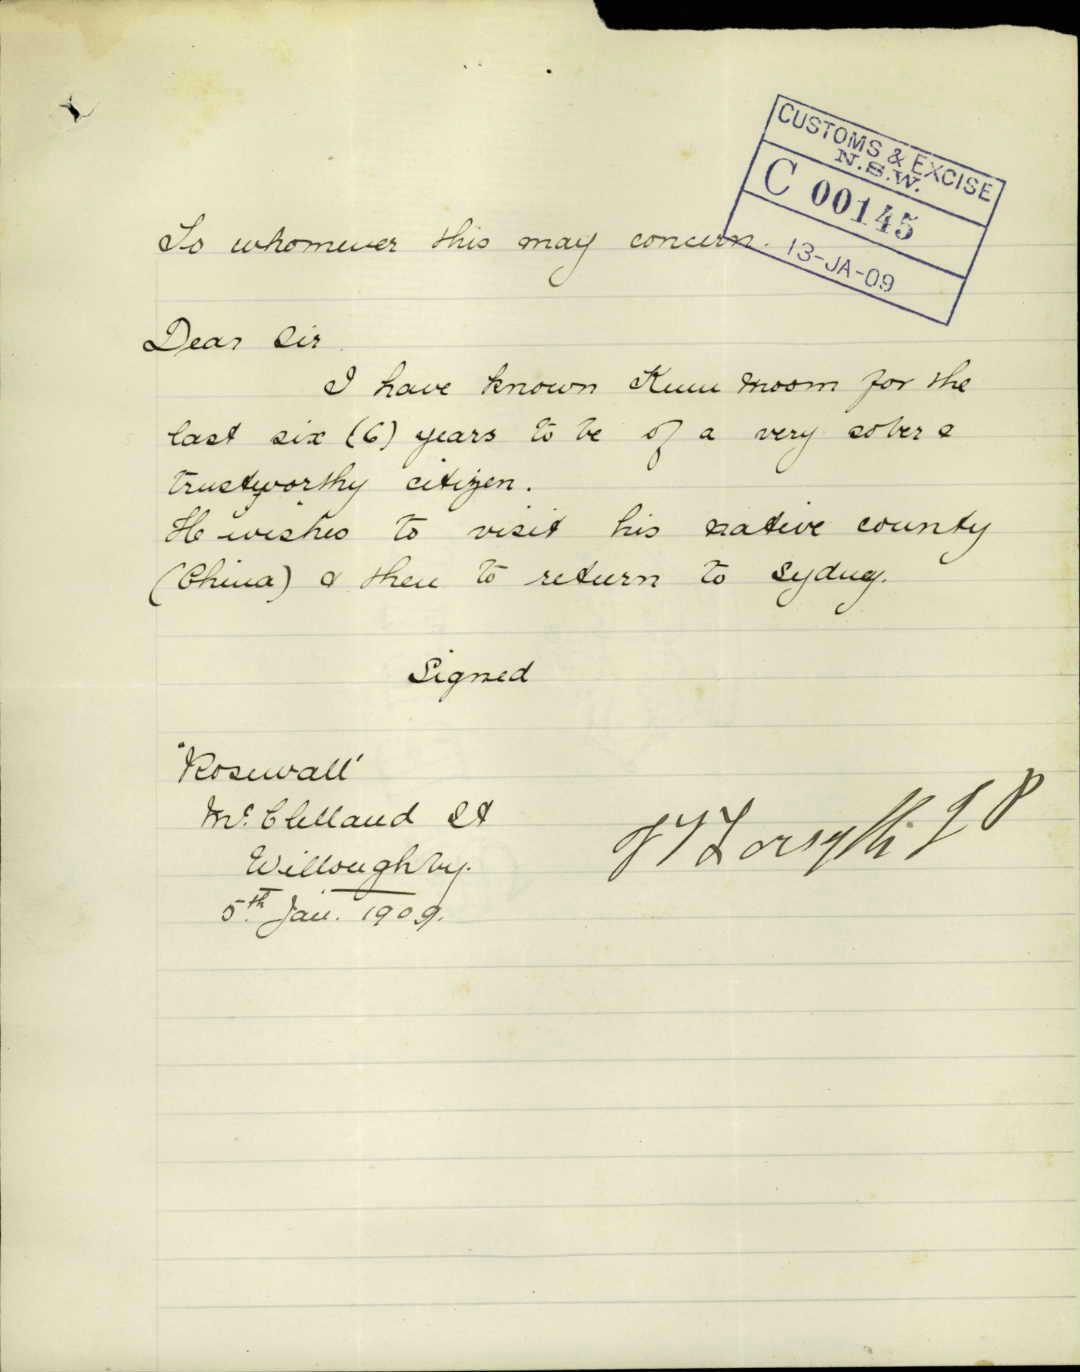 CUSTOMS & EXCISE
N.S.W.
C 00145
13-JA-09
To whomever this may concern.
Dear Sir
I have known Kum Moom for the
last six (6) years to be of a very sober &
trustworthy citizen.
He wishes to visit his native county
(China) & then to return to Sydney.
Signed
"Rosewall"
Mc. Clelland St
Willoughby.
5th Jan. 1909.
Forsyth J P